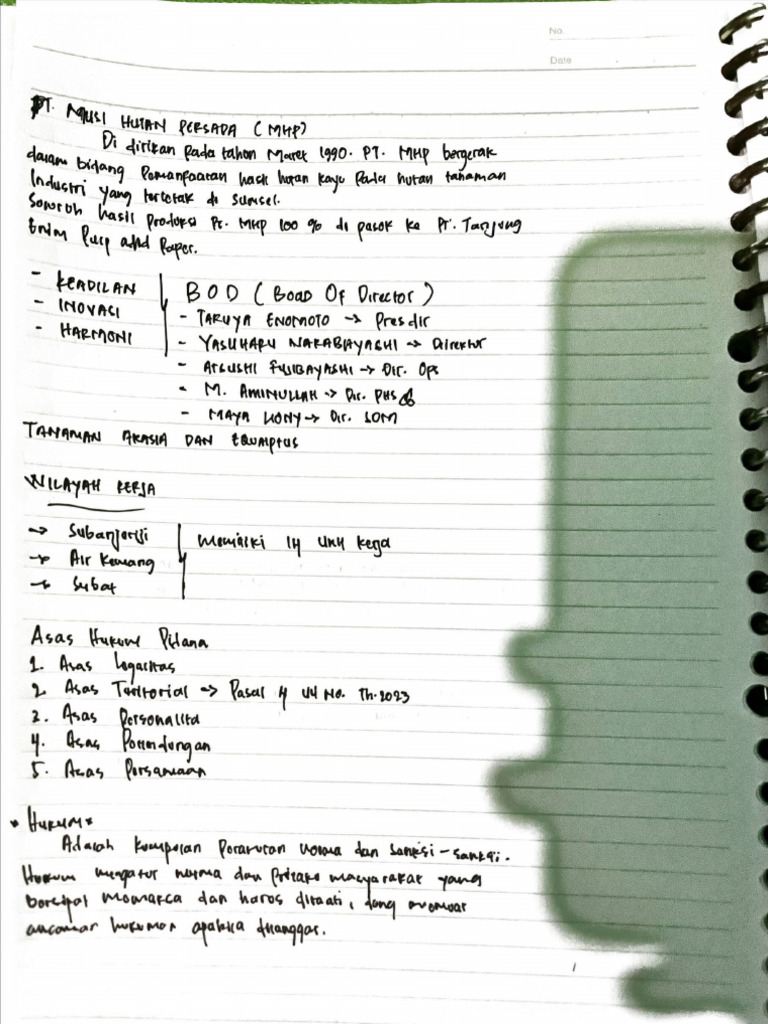 No.
Date
PT. MUSI HUTAN PERSADA (MHP)
Di dirikan pada tahun Maret 1990. PT. MHP bergerak
dalam bidang Pemanfaatan hasil hutan kayu pada hutan tanaman
Industri yang terletak di Sumsel.
Seluruh hasil Produksi Pt. MHP 100 % di pasok ke PT. Tanjung
Enim Pulp and Paper.
- KEADILAN
- INOVASI
- HARMONI
BOD (Boad Of Director)
- TARUYA ENOMOTO -> Presdir
- YASUHARU NAKABAYASHI -> Direktur
- ATSUSHI FUJIBAYASHI -> Dir. Ops
- M. AMINULLAH -> Dir. PHS
- MAYA -> Dir. SDM
TANAMAN AKASIA DAN
WILAYAH KERJA
-> Subanjeriji
-> Air Kemang
-> Subat
Memiliki 14 Unit Kerja
Asas Hukum Pidana
1. Asas Legalitas
2. Asas Teritorial -> Pasal 4 UU No. Th. 2023
3. Asas Personalita
4. Asas Perlindungan
5. Asas Persamaan
* Hukum *
Adalah kumpulan Peraturan norma dan Sanksi-sanksi.
Hukum mengatur norma dan Prilaku masyarakat yang
bersipat memaksa dan harus ditaati, dang
ancaman hukuman apabila dilanggar.
1